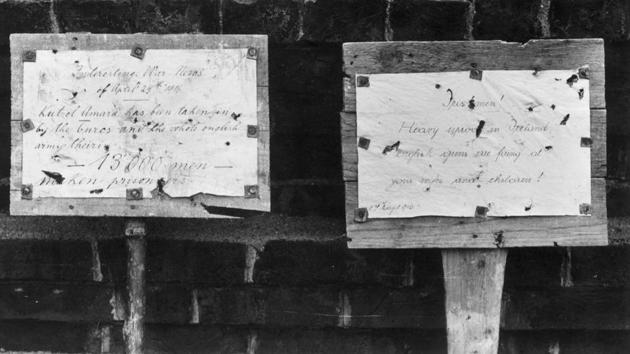 Interesting War News
of April 29th 1916
Kut-el-Amara has been taken in
by the Turcs and the whole english
army therein
— 13000 men —
maken prisoners.
Irishmen!
Heavy uproar in Ireland
English guns are firing at
your wifes and children!
1st May 1916